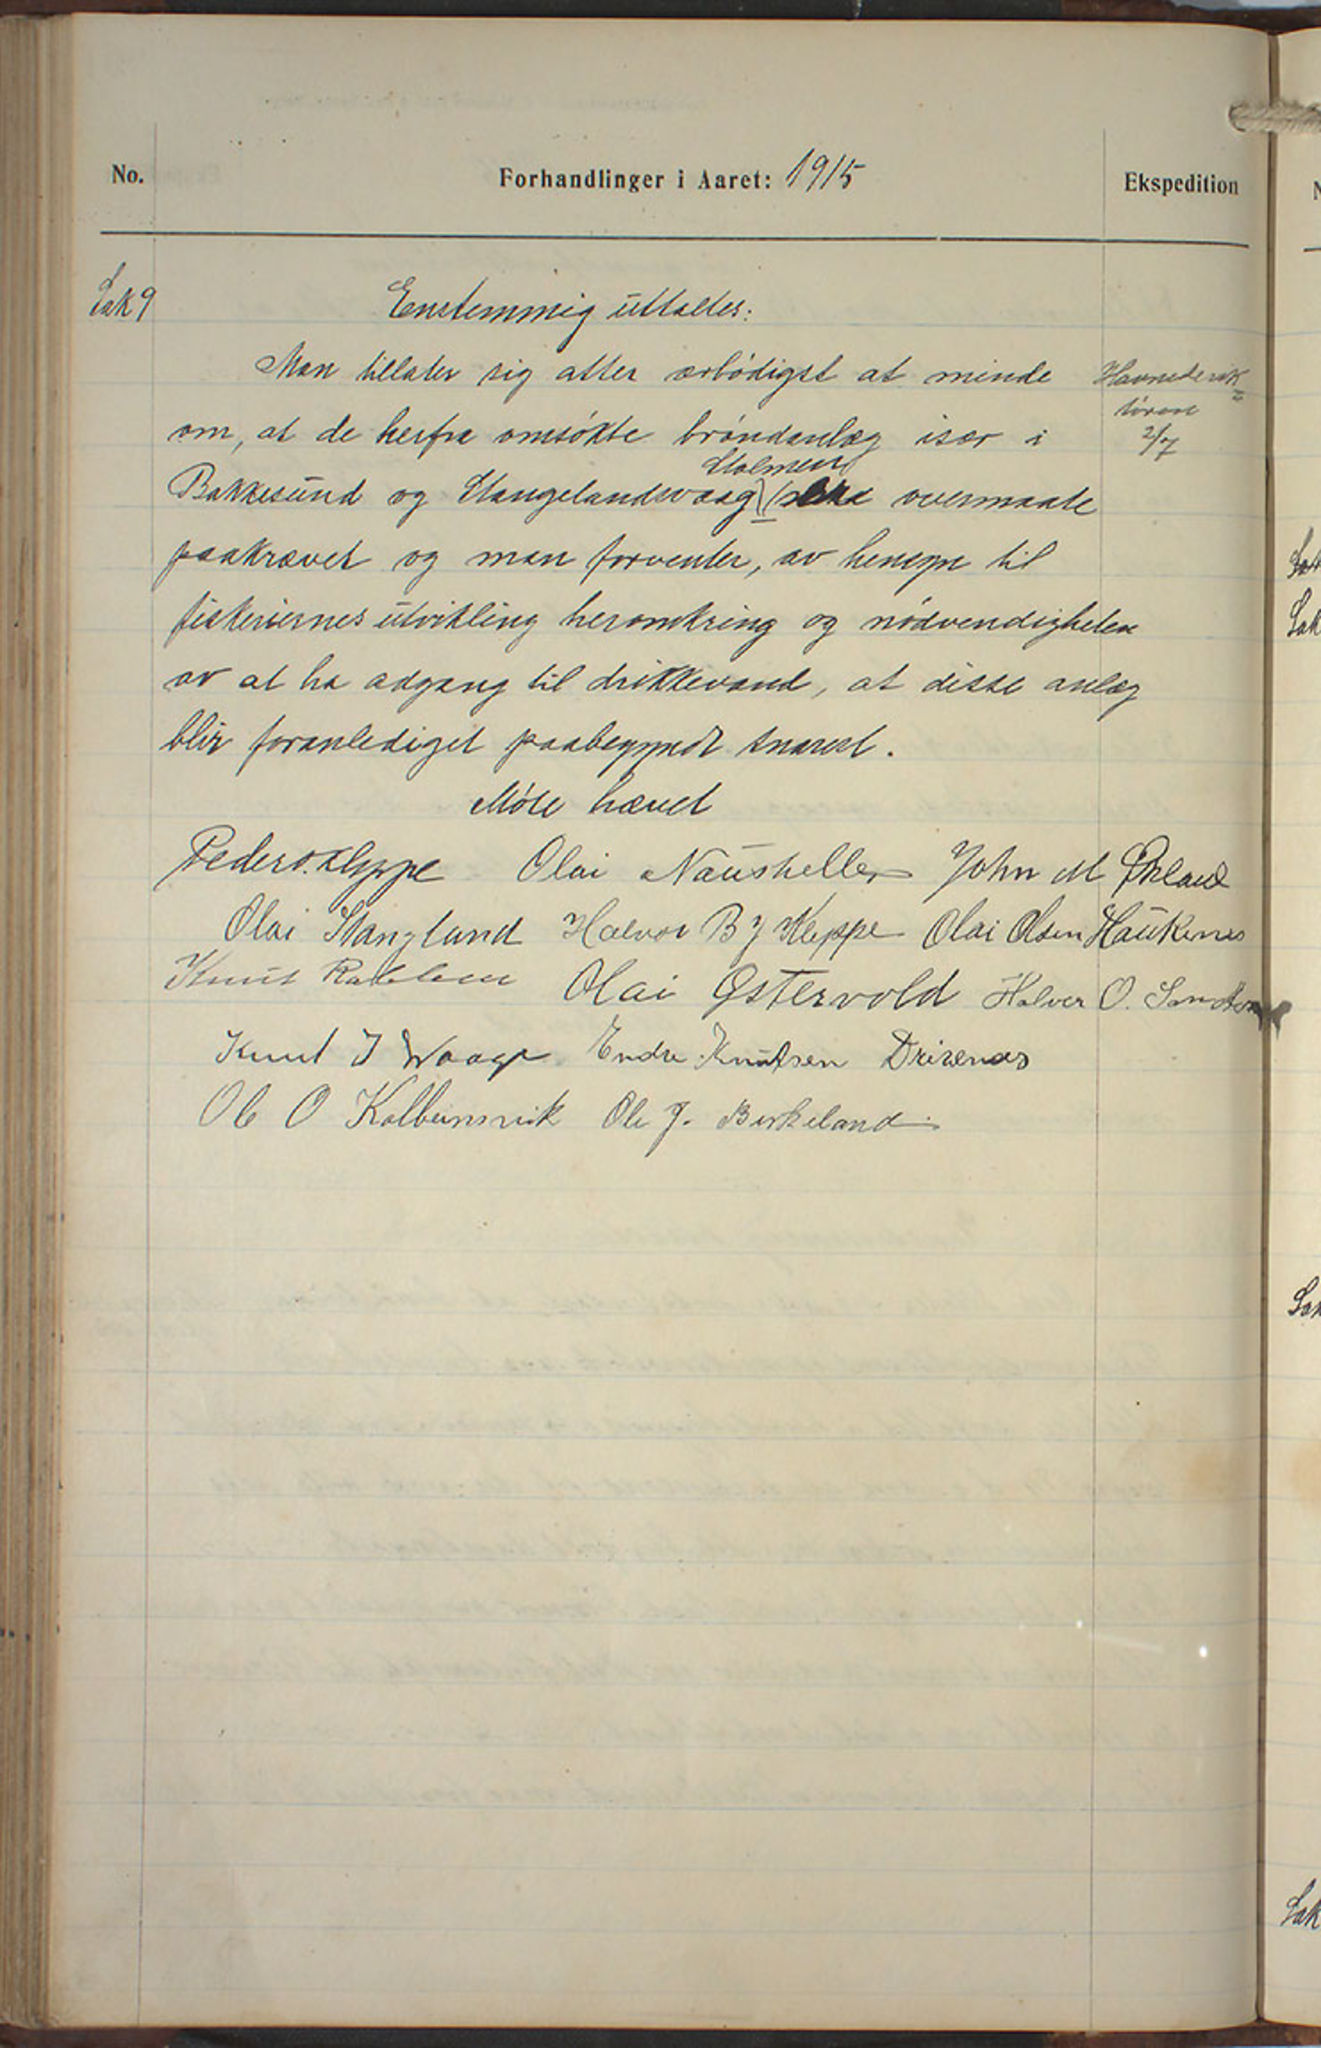 No.
Forhandlinger i Aaret: 1915
Ekspedition
Sak 9
Enstemmig uttaltes:
Man tillater sig atter ærbödigst at minde
om, at de herfra omsökte bröndanlæg især i
Stolmen
Bakkesund og Stangelandsvaag overmaate
paakrævet og man forventer, av hensyn til
fiskeriernes utvikling heromkring og nödvendigheten
av at ha adgang til drikkevand, at disse anlæg
blir foranlediget paabegyndt snarest.
Havnedirek
tören
2/7
Möte hævet
Peder O. Kleppe Olai Naustheller John M Økland
Olai Stangland Halvor B J Kleppe Olai Olsen Haukenes
Knut Rabben Olai Østervold Halver O.
Knut J Waage Endre Knutsen Drivenes
Ole O Kolbeinsvik Ole J. Birkeland
Sak
Sak
Sak
Sak